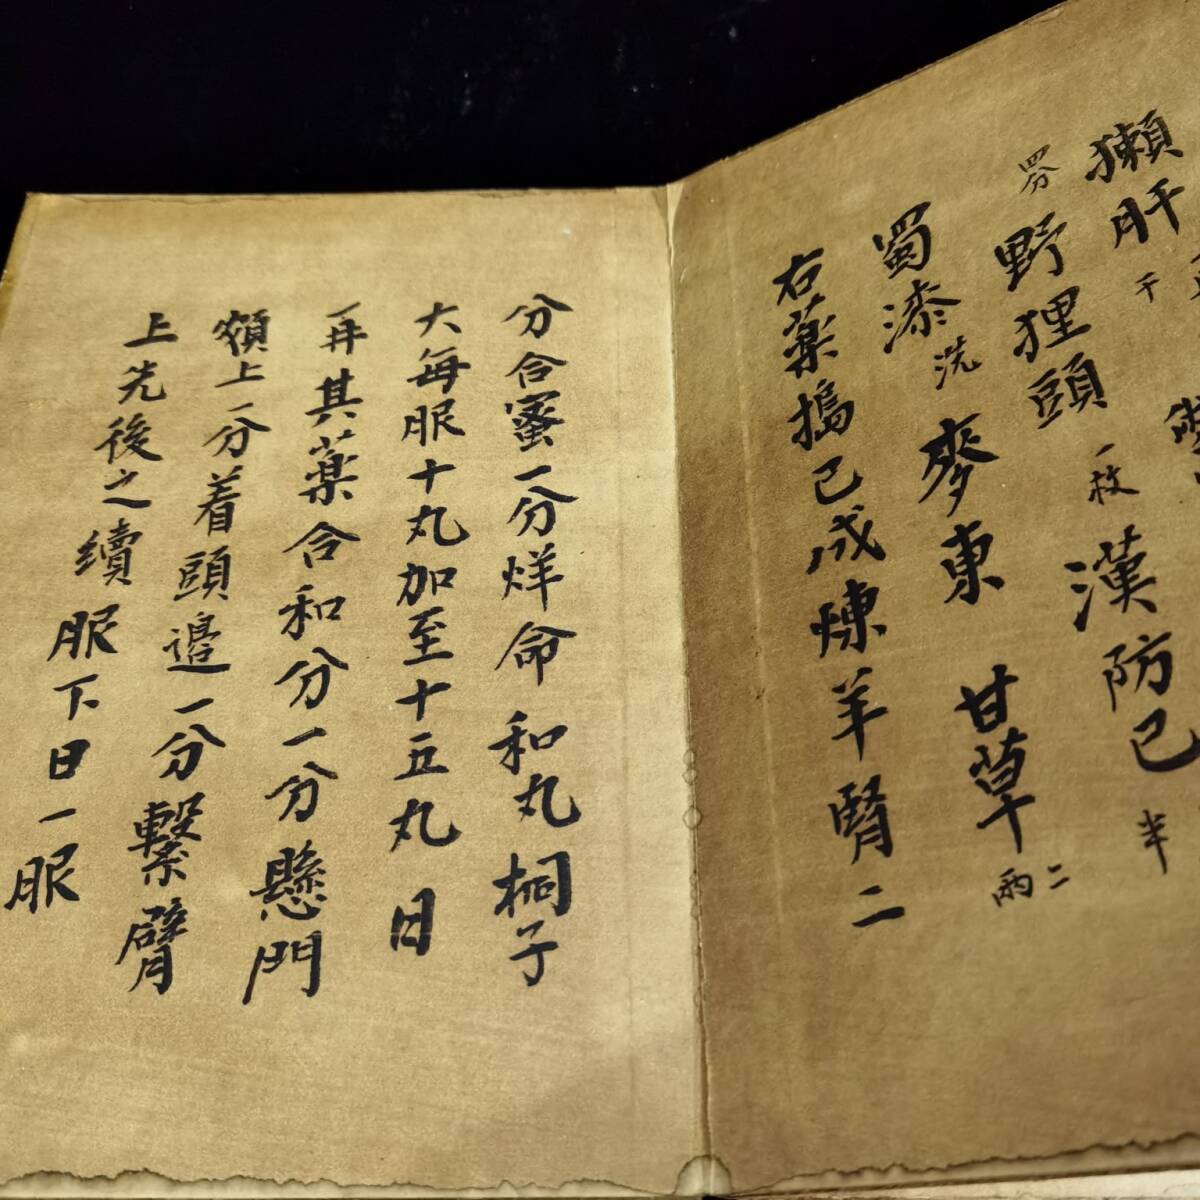 獺肝 干
四分 野狸頭 一枚 漢防已 半
蜀漆 洗 麥東 甘草 二兩
右藥搗已成煉羊腎二
分合蜜一分烊命和丸桐子
大每服十丸加至十五丸日
一再其藥合和分一分懸門
額上一分着頭邊一分繫臂
上先後之續服下日一服